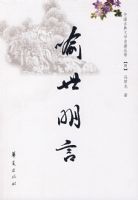 中国古典文学名著丛书
【明】冯梦龙 著
喻世明言
华夏出版社